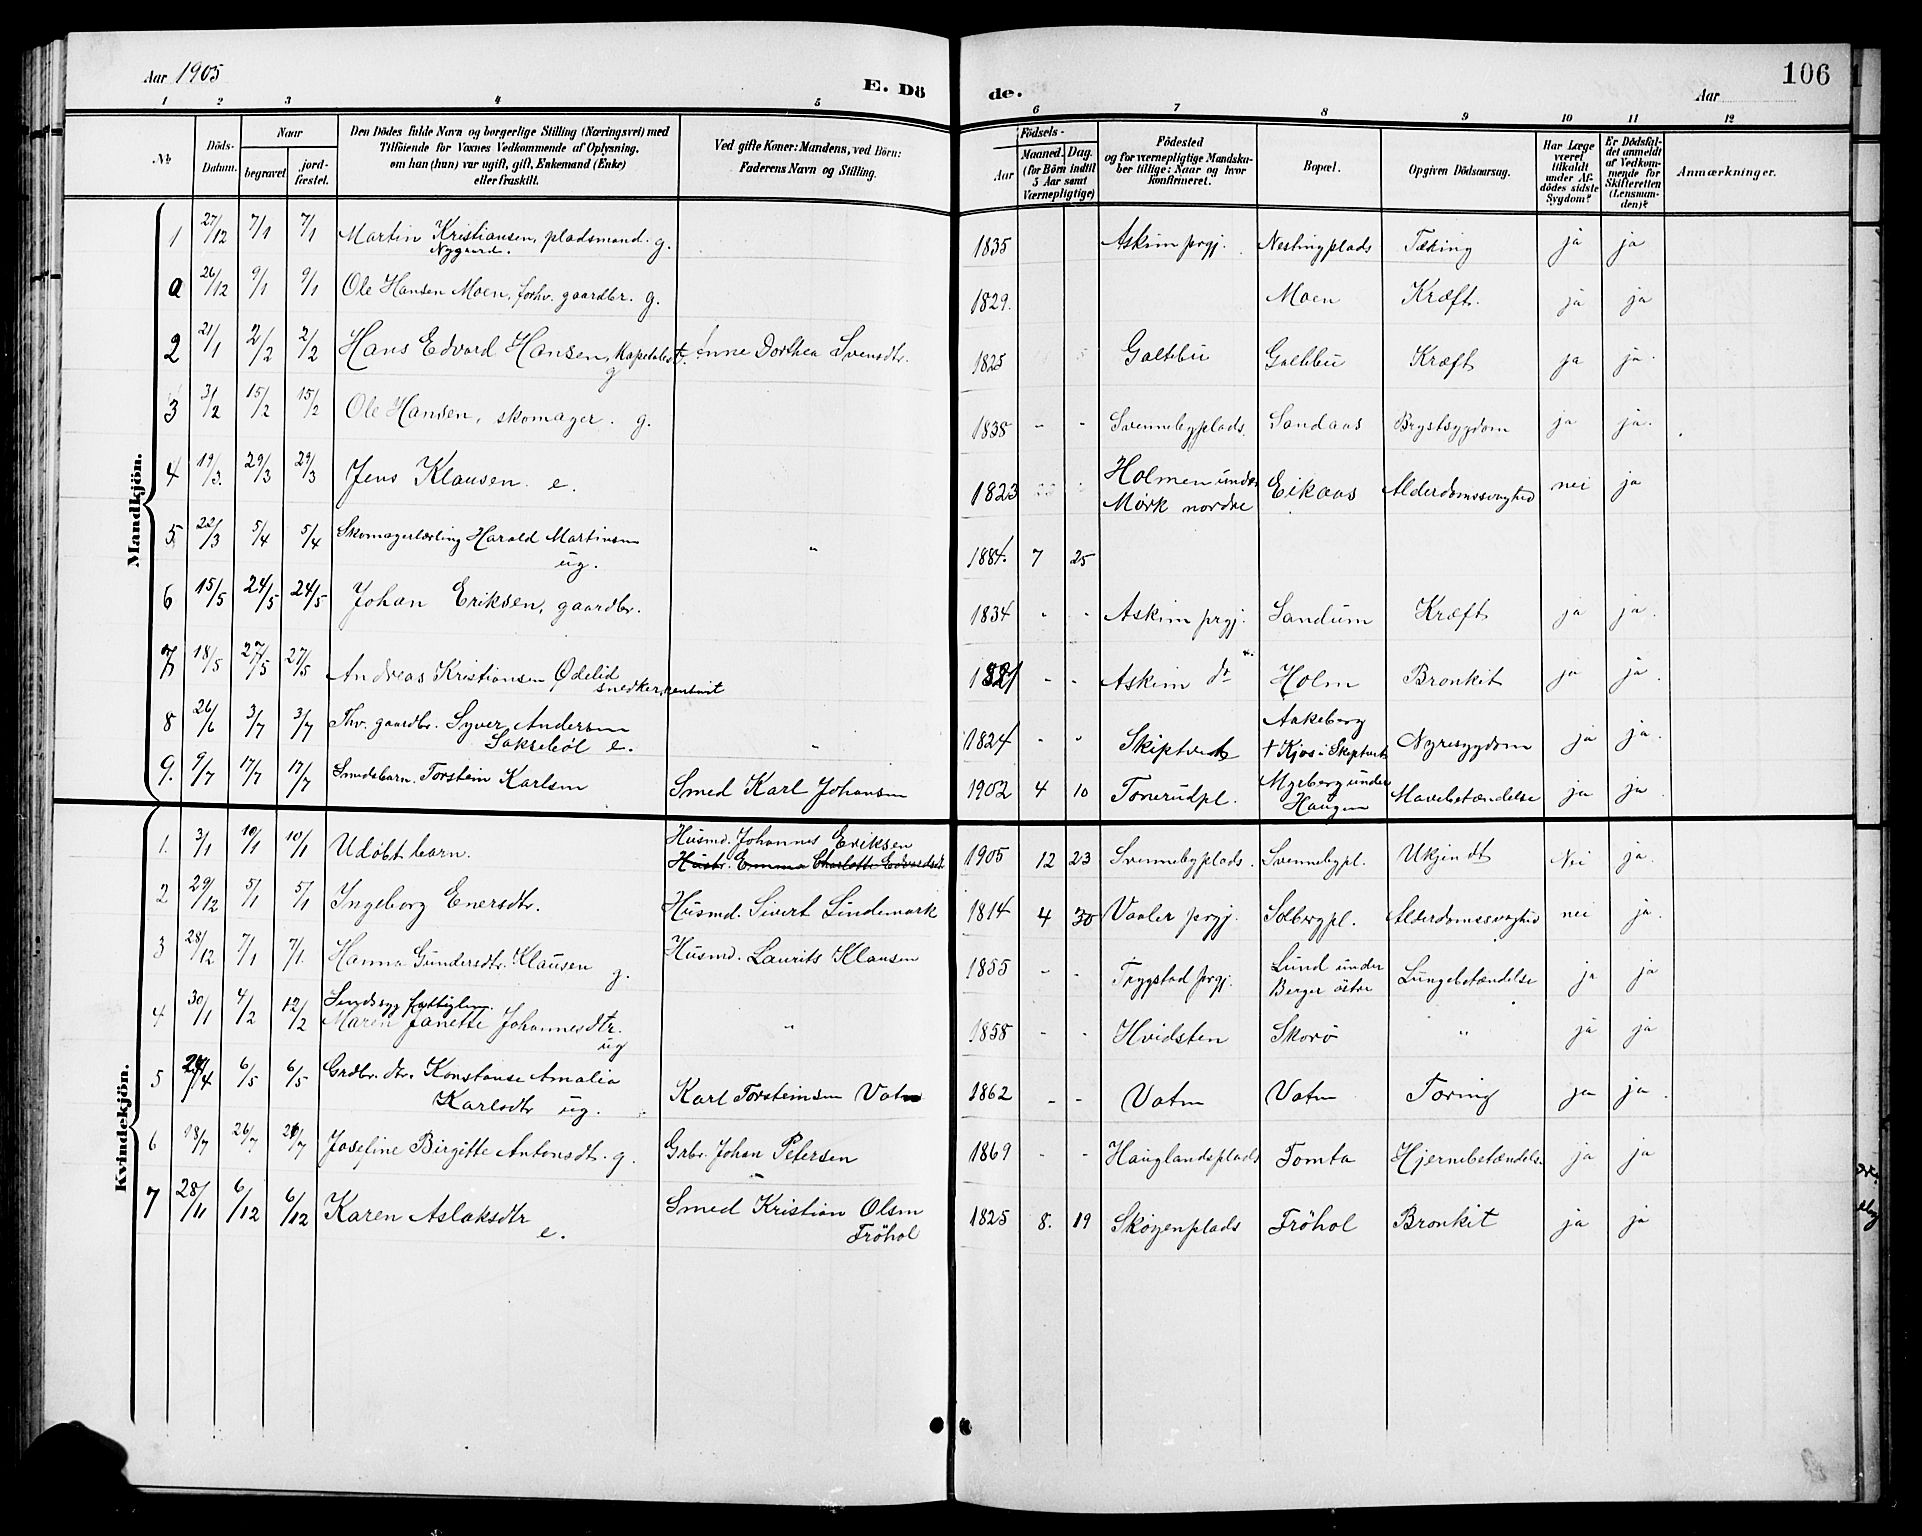 Aar 1905
E. Dö
de.
106
Aar
1 2 3 4 5 6 7 8 9 10 11 12
No. | Döds-Datum. | Naar begravet | jord-fæstet. | Den Dödes fulde Navn og borgerlige Stilling (Næringsvei) med Tilföiende for Voxnes Vedkommende af Oplysning. om han (hun) var ugift, gift, Enkemand (Enke) eller fraskilt. | Ved gifte Koner: Mandens, ved Börn: Faderens Navn og Stilling. | Födsels- Aar | Maaned. Dag. (for Börn indtil 5 Aar samt Værnepligtige) | Födested og for værnepligtige Mandskaber tillige: Naar og hvor konfirmeret. | Bopæl. | Opgiven Dödsaarsag. | Har Læge været tilkaldt under Afdödes sidste Sygdom? | Er Dödsfaldet anmeldt af Vedkommende for Skifteretten (Lensmanden)? | Anmærkninger.
Mandkjön.
1 27/12 7/1 7/1 Martin Kristiansen, pladsmand. g. Nygaard. 1835 Askim prgj. Nestingplads Tæring ja ja
a 26/12 9/1 9/1 Ole Hansen Moen, forhv. gaardbr. g. 1829. Moen Kræft. ja ja
2 21/1 2/2 2/2 Hans Edvard Hansen, Kapetalist. g Anne Dorthea Svensdtr. 1825 Galtebu Galtebu Kræft ja ja.
3 3/2 15/2 15/2 Ole Hansen, skomager. g. 1835 - - Svennebyplads. Sandaas Brystsygdom ja ja.
4 19/3. 29/3 29/3 Jens Klausen. e. 1823 Holmen under Mørk nordre Eikaas Alderdomssvaghed nei ja
5 22/3 5/4 5/4 Skomagerlærling Harald Martinsen ug. " 1884. 7 25
6 15/5 24/5 24/5 Johan Eriksen, gaardbr. 1834 - - Askim prgj. Sandum Kræft ja ja.
7 18/5 27/5 27/5 Andreas Kristiansen Ødelid snedker, 1821 - - Askim dt Holm Bronkit ja ja.
8 26/6 3/7 3/7 Fhv. gaardbr. Syver Andersen Saksebøl e. " 1824 - " Skiptvet Aakeberg + Kjos i Skiptvet Nyresygdom ja ja.
9. 9/7 17/7 17/7 Smedsbarn. Torstein Karlsen Smed Karl Johansen 1902 4 10 Tonerudpl. Myrberg under Haugen Mavebetændelse ja ja.
Kvindekjön.
1. 3/1 10/1 10/1 Udøbt barn. Husmd. Johannes Eriksen Hustr. Emma Charlotte Edvardsdt. 1905 12 23 Svennebyplads. Svennebypl. Ukjendt Nei ja.
2 29/12 5/1 5/1 Ingeborg Enersdtr. Husmd. Sivert Lindemark 1814 4 30 Vaaler prgj. Solbergpl. Alderdomssvaghed nei ja.
3 28/12 7/1 7/1. Hanna Gundersdtr. Klausen g. Husmd. Laurits Klausen 1855 - - Trygstad prgj. Lund under Berger østre Lungebetændelse ja ja
4 30/1 4/2 12/2 Sindssyg fattiglem. Maren Janette Johannesdtr. ug " 1858 - - Hvidsten Skorø " ja ja
5 24/4 6/5 6/5 Grdbr. dtr. Konstanse Amalia Karlsdtr ug. Karl Torsteinsen Vatn 1862 - - Vatn Vatn Tæring ja ja.
6 18/7 26/7 26/7 Josefine Birgitte Antonsdtr. g. Grbr. Johan Petersen 1869 - - Hauglandsplads Tomta Hjernebetændelse ja ja
7 28/11 6/12 6/12 Karen Aslaksdtr e. Smed Kristian Olsen Frøhol 1825 8. 19 Skøyenplads Frøhol Bronkit ja ja